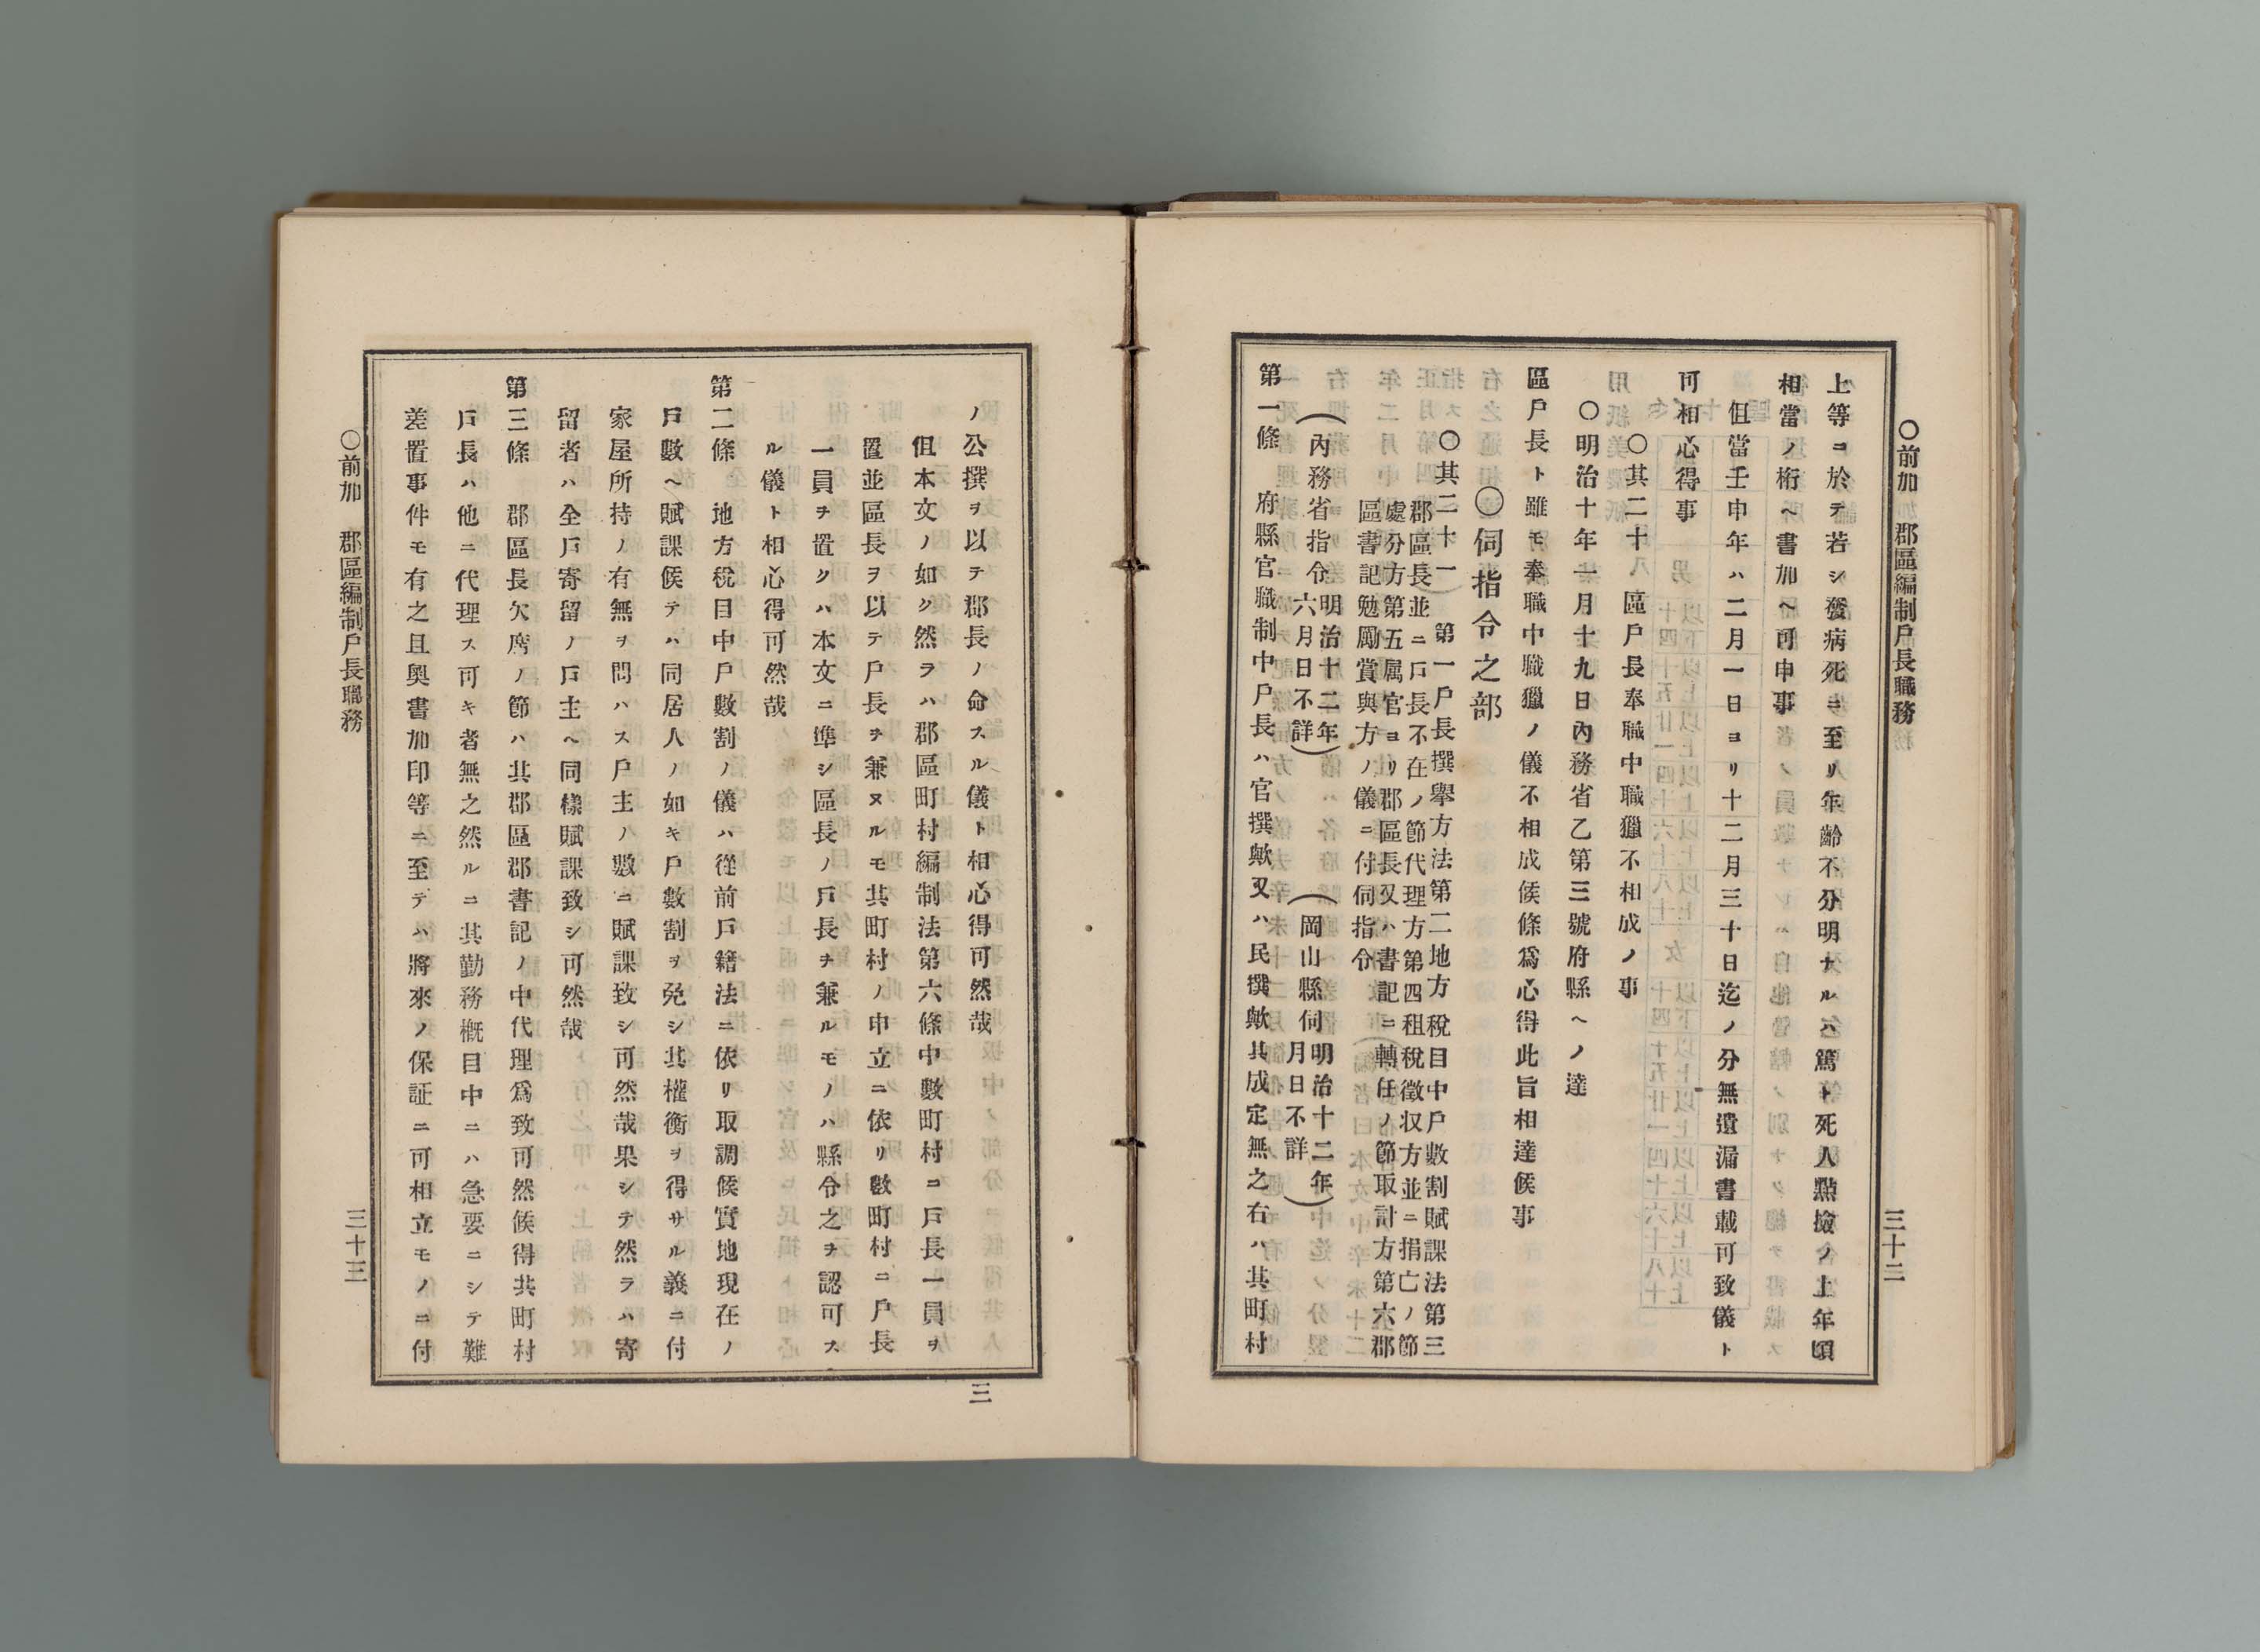 ○前加　郡區編制戶長職務
三十二
上等ニ於テ若シ發病死ニ至リ年齡不分明ナルハ篤ト死人點撿ノ上年頃
相當ノ桁ヘ書加ヘ可申事
但當壬申年ハ二月一日ヨリ十二月三十日迄ノ分無遺漏書載可致儀ト
可相心得事
○其二十　區戶長奉職中職獵不相成ノ事
○明治十年一月十九日內務省乙第三號府縣ヘノ達
區戶長ト雖モ奉職中職獵ノ儀不相成候條爲心得此旨相達候事
○伺指令之部
○其二十一　第一戶長撰擧方法第二地方稅目中戶數割賦課法第三
郡區長並ニ戶長不在ノ節代理方第四租稅徵収方並ニ捐亡ノ節
處分方第五屬官ヨリ郡區長又ハ書記ニ轉任ノ節取計方第六郡
區書記勉勵賞與方ノ儀ニ付伺指令
（內務省指令 明治十二年 六月日不詳）　（岡山縣伺 明治十二年 月日不詳）
第一條　府縣官職制中戶長ハ官撰歟又ハ民撰歟其成定無之右ハ其町村
ノ公撰ヲ以テ郡長ノ命スル儀ト相心得可然哉
但本文ノ如ク然ラハ郡區町村編制法第六條中數町村ニ戶長一員ヲ
置並區長ヲ以テ戶長ヲ兼ヌルモ其町村ノ申立ニ依リ數町村ニ戶長
一員ヲ置クハ本文ニ準シ區長ノ戶長ヲ兼ルモノハ縣令之ヲ認可ス
ル儀ト相心得可然哉
第二條　地方稅目中戶數割ノ儀ハ從前戶籍法ニ依リ取調候實地現在ノ
戶數ヘ賦課候テハ同居人ノ如キ戶數割ヲ免シ其權衡ヲ得サル義ニ付
家屋所持ノ有無ヲ問ハス戶主ノ數ニ賦課致シ可然哉果シテ然ラハ寄
留者ハ全戶寄留ノ戶主ヘ同樣賦課致シ可然哉
第三條　郡區長欠席ノ節ハ其郡區郡書記ノ中代理爲致可然候得共町村
戶長ハ他ニ代理ス可キ者無之然ルニ其勤務槪目中ニハ急要ニシテ難
差置事件モ有之且奧書加印等ニ至テハ將來ノ保証ニ可相立モノニ付
○前加　郡區編制戶長職務
三十三
三